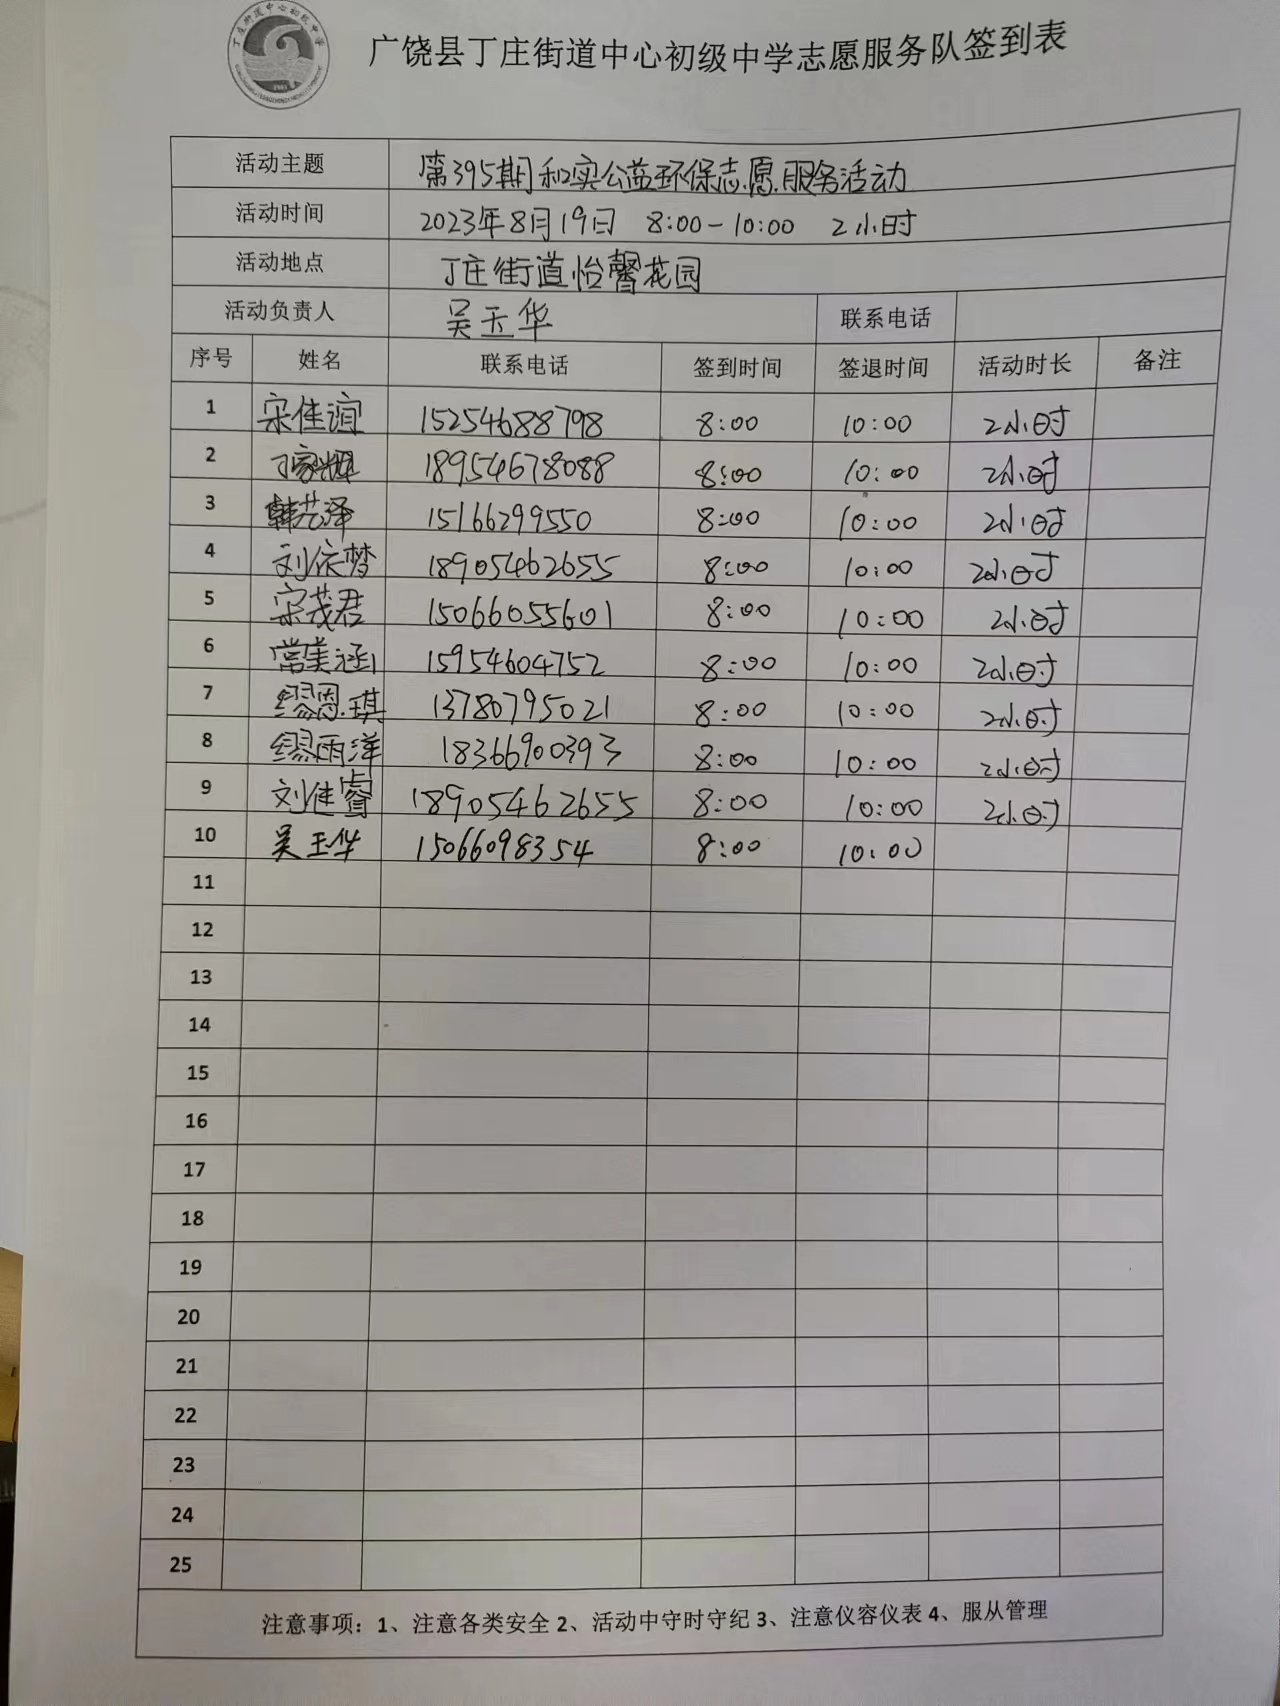 丁庄街道中心初级中学
广饶县丁庄街道中心初级中学志愿服务队签到表
活动主题 第395期和实公益环保志愿服务活动
活动时间 2023年8月19日 8:00-10:00 2小时
活动地点 丁庄街道怡馨花园
活动负责人 吴玉华 联系电话
序号 姓名 联系电话 签到时间 签退时间 活动时长 备注
1 宋佳谊 15254688798 8:00 10:00 2小时
2 丁家辉 18954678088 8:00 10:00 2小时
3 韩艺泽 15166299550 8:00 10:00 2小时
4 刘依梦 18905462655 8:00 10:00 2小时
5 宋茂君 15066055601 8:00 10:00 2小时
6 常美涵 15954604752 8:00 10:00 2小时
7 缪恩琪 13780795021 8:00 10:00 2小时
8 缪雨洋 18366900393 8:00 10:00 2小时
9 刘佳睿 18905462655 8:00 10:00 2小时
10 吴玉华 15066098354 8:00 10:00
11
12
13
14
15
16
17
18
19
20
21
22
23
24
25
注意事项：1、注意各类安全 2、活动中守时守纪 3、注意仪容仪表 4、服从管理